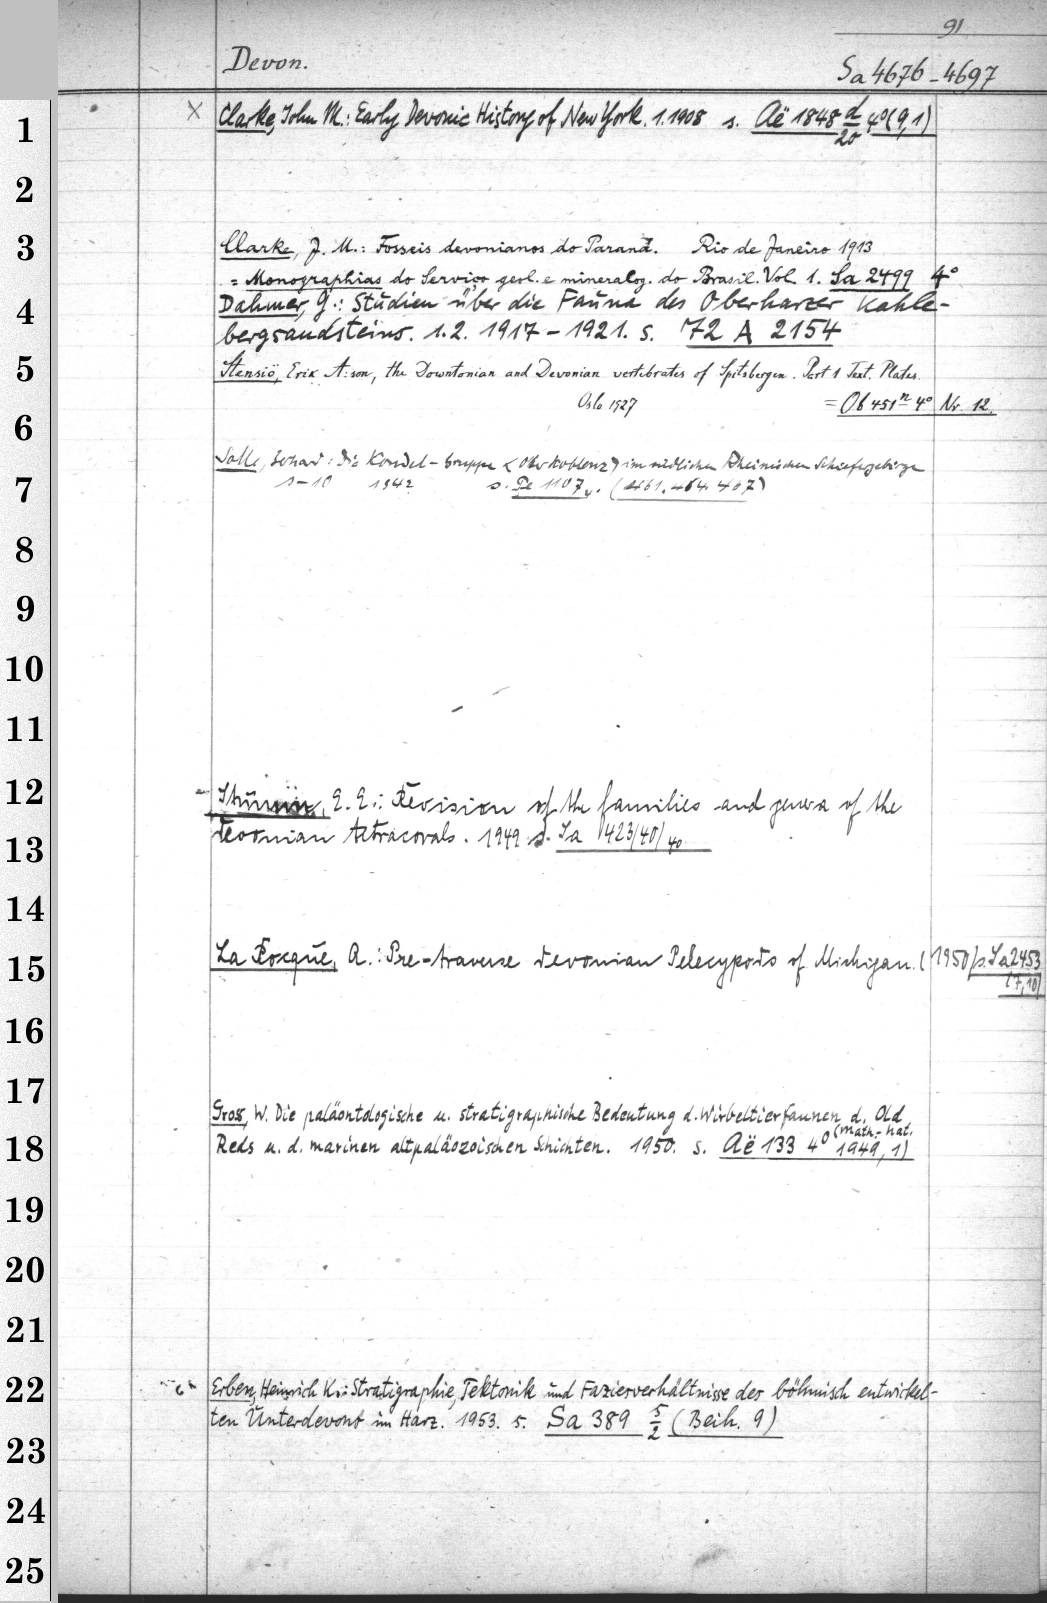 91
Devon.
Sa 4676-4697
1
X Clarke, John M.: Early Devonic History of New York. 1.1908 s. Aë 1848 d/20 4° (9,1)
2
3
Clarke, J. M.: Fosseis devonianos do Paraná. Rio de Janeiro 1913
= Monographias do Serviço geol. e mineralog. do Brasil. Vol. 1. Sa 2499 4°
4
Dahmer, G.: Studien über die Fauna des Oberharzer Kahle-
bergsandsteins. 1.2. 1917-1921. s. 72 A 2154
5
Stensiö, Erik A:son, the Downtonian and Devonian vertebrates of Spitsbergen. Part 1 Text. Plates.
Oslo 1927 = Ob 451n 4° Nr. 12.
6
Solle, : Die Kondel-Gruppe (Oberkoblenz) im südlichen Rheinischen Schiefergebirge
7
1-10 1942 s. 1107 (461. 464. 467)
8
9
10
11
12
E. C.: Revision of the families and genera of the
13
Devonian tetracorals. 1949 s. Sa 1423/40/4°
14
15
La Rocque, A.: Pre-traverse devonian Pelecypods of Michigan. (1950) s. Sa 2453
(7,10)
16
17
Gross, W. Die paläontologische u. stratigraphische Bedeutung d. Wirbeltierfaunen d. Old
18
Reds u. d. marinen altpaläozoischen Schichten. 1950. s. Aë 133 4° (math.-nat. 1949, 1)
19
20
21
22
Erben, Heinrich K.: Stratigraphie, Tektonik und Faziesverhältnisse des böhmisch entwickel-
ten Unterdevons im Harz. 1953. s. Sa 389 5/2 (Beih. 9)
23
24
25